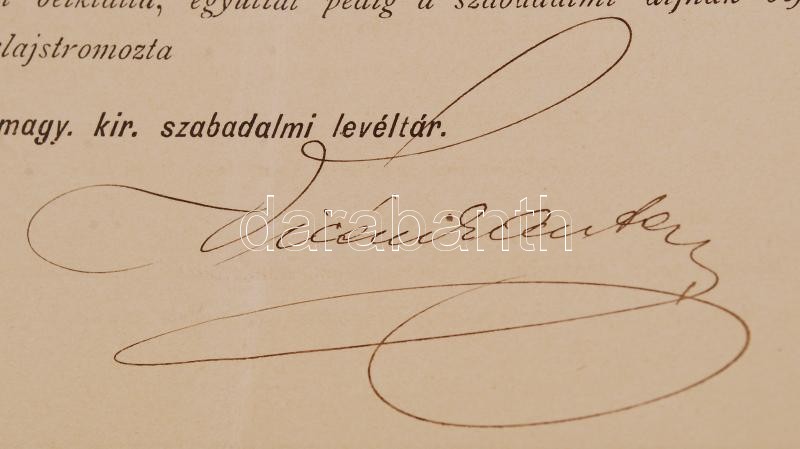 beiktatta, egyúttal pedig a szabadalmi díjnak
lajstromozta
magy. kir. szabadalmi levéltár.
darabanth